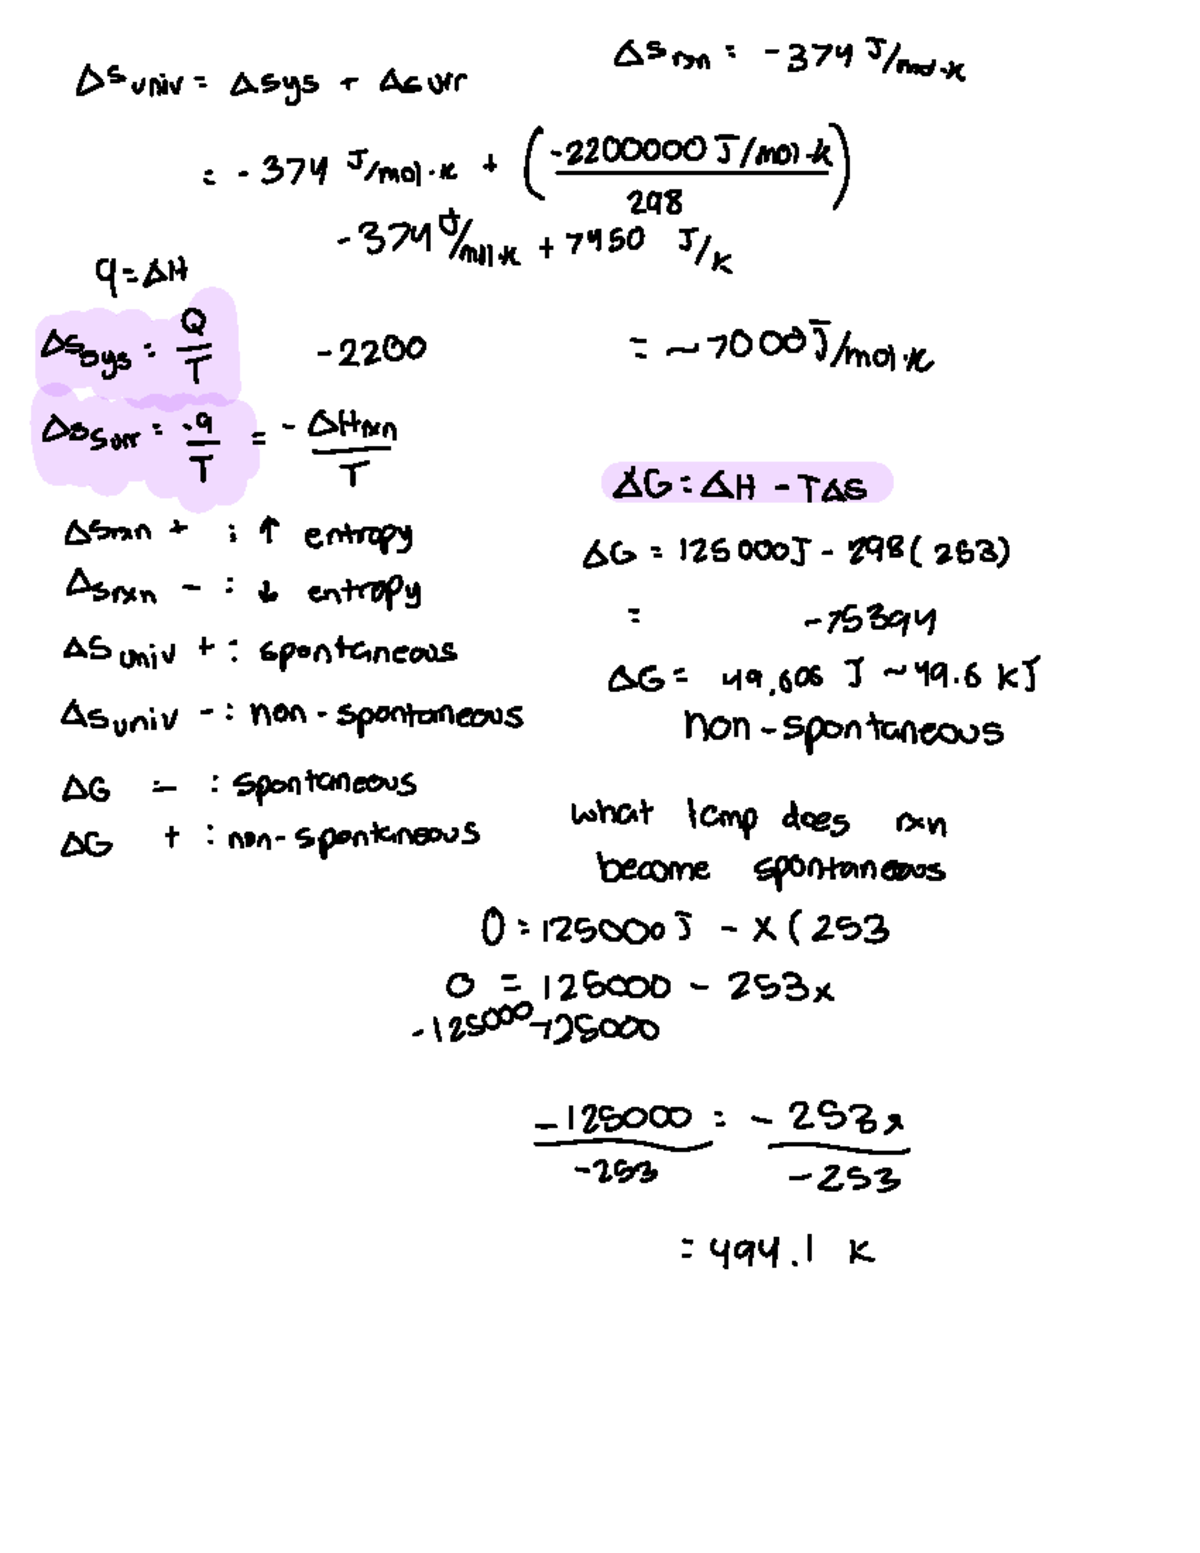 ΔSuniv = Δsys + Δsurr
ΔSrxn = -374 J/mol·K
= -374 J/mol·K + (-2200000 J/mol·K / 298)
-374 J/mol·K + 7450 J/K
= ~7000 J/mol·K
q = ΔH
ΔSsys = Q/T -2200
ΔSsurr = -q/T = -ΔHrxn/T
ΔSrxn + : ↑ entropy
ΔSrxn - : ↓ entropy
ΔSuniv + : spontaneous
ΔSuniv - : non-spontaneous
ΔG - : spontaneous
ΔG + : non-spontaneous
ΔG = ΔH - TΔS
ΔG = 125000J - 298(253)
= -75394
ΔG = 49,606 J ~ 49.6 KJ
non-spontaneous
what temp does rxn
become spontaneous
0 = 125000 J - x(253
0 = 125000 - 253x
-125000 -125000
-125000 = -253x
-253 -253
= 494.1 K